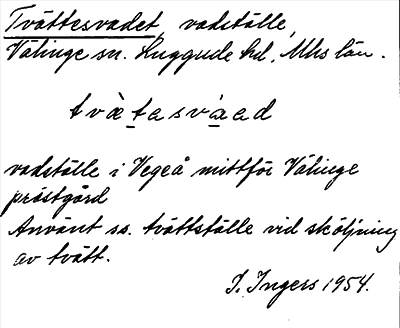 Tvättesvadet, vadställe,
Välinge sn. Luggude hd, Mhs län.
tvä̀tasváad
vadställe i Vegeå mittför Välinge
prästgård
Använt ss. tvättställe vid sköljning
av tvätt.
I. Ingers 1954.